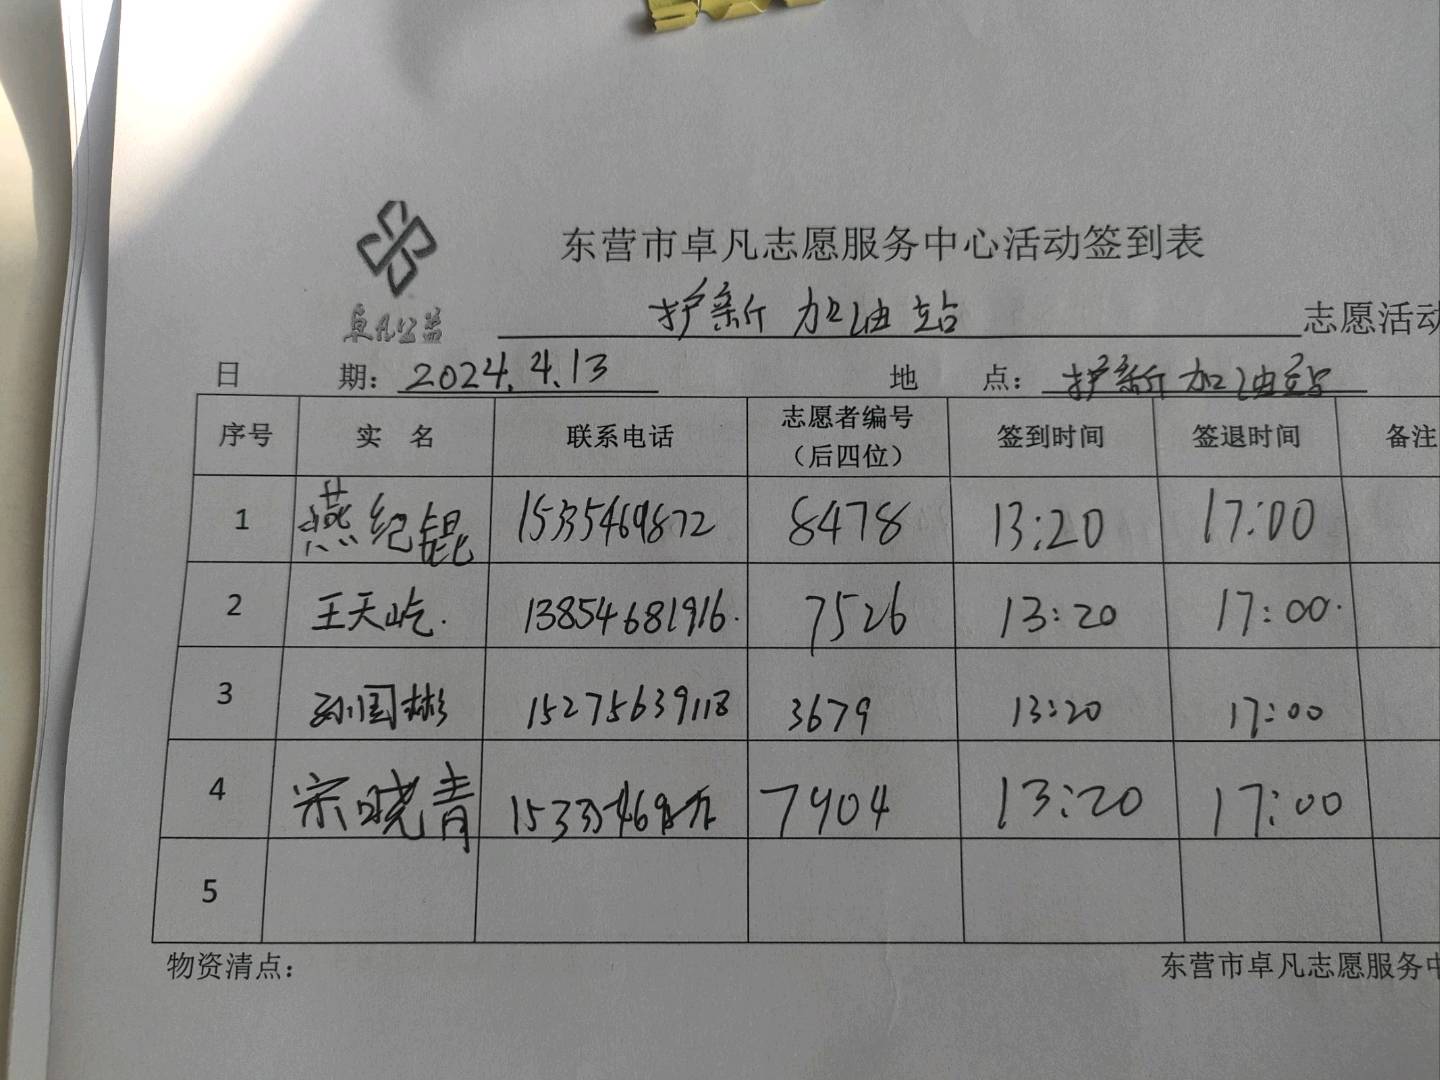 东营市卓凡志愿服务中心活动签到表
卓凡公益
护新加油站 志愿活动
日期：2024.4.13 地点：护新加油站
序号 实名 联系电话 志愿者编号（后四位） 签到时间 签退时间 备注
1 燕纪锟 15335469872 8478 13:20 17:00
2 王天屹. 13854681916. 7526 13:20 17:00.
3 孙国彬 15275639118 3679 13:20 17:00
4 宗晓青 7904 13:20 17:00
5
物资清点： 东营市卓凡志愿服务中